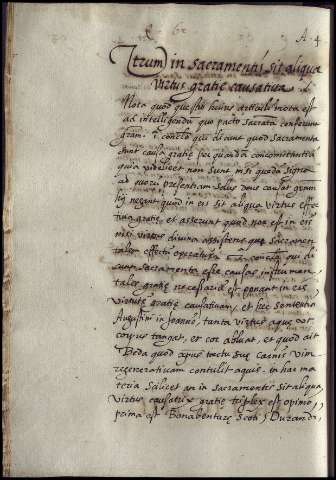 A 4
Utrum in sacramentis sit aliqua
virtus gratiẹ causativa
Nota quod questio huius articuli mota est
ad intelligendum quo pacto sacrata conferunt
gratia. qui dicunt quod sacramenta
sunt causa gratiẹ per quandã concomitantiã
quia videlicet non sunt nisi quedã signa
ad quorũ presentiam solus Deus causat gratiam
negant quod in eis sit aliqua virtus effe
ctiva gratiẹ, et asserunt quod non est in eis
nisi virtus divina assistens quẹ sacramen
talem effectũ operatur qui di
cunt sacramenta esse causas instrumen
tales gratiẹ necessario est ponant in eis
virtutẽ gratiẹ causativam, et hec sententia
Augustini in Joannẽ, tanta virtus aquẹ ut
corpus tangat, et cor abluat, et quod ait
Beda quod Xpus tactu suẹ Carnis vim
regenerativam contulit aquis. in hac ma
teria scilicet an in sacramentis sit aliqua
virtus causatrix gratiẹ triplex est opinio
prima est Bonaventurẹ Scoti, Durandi,